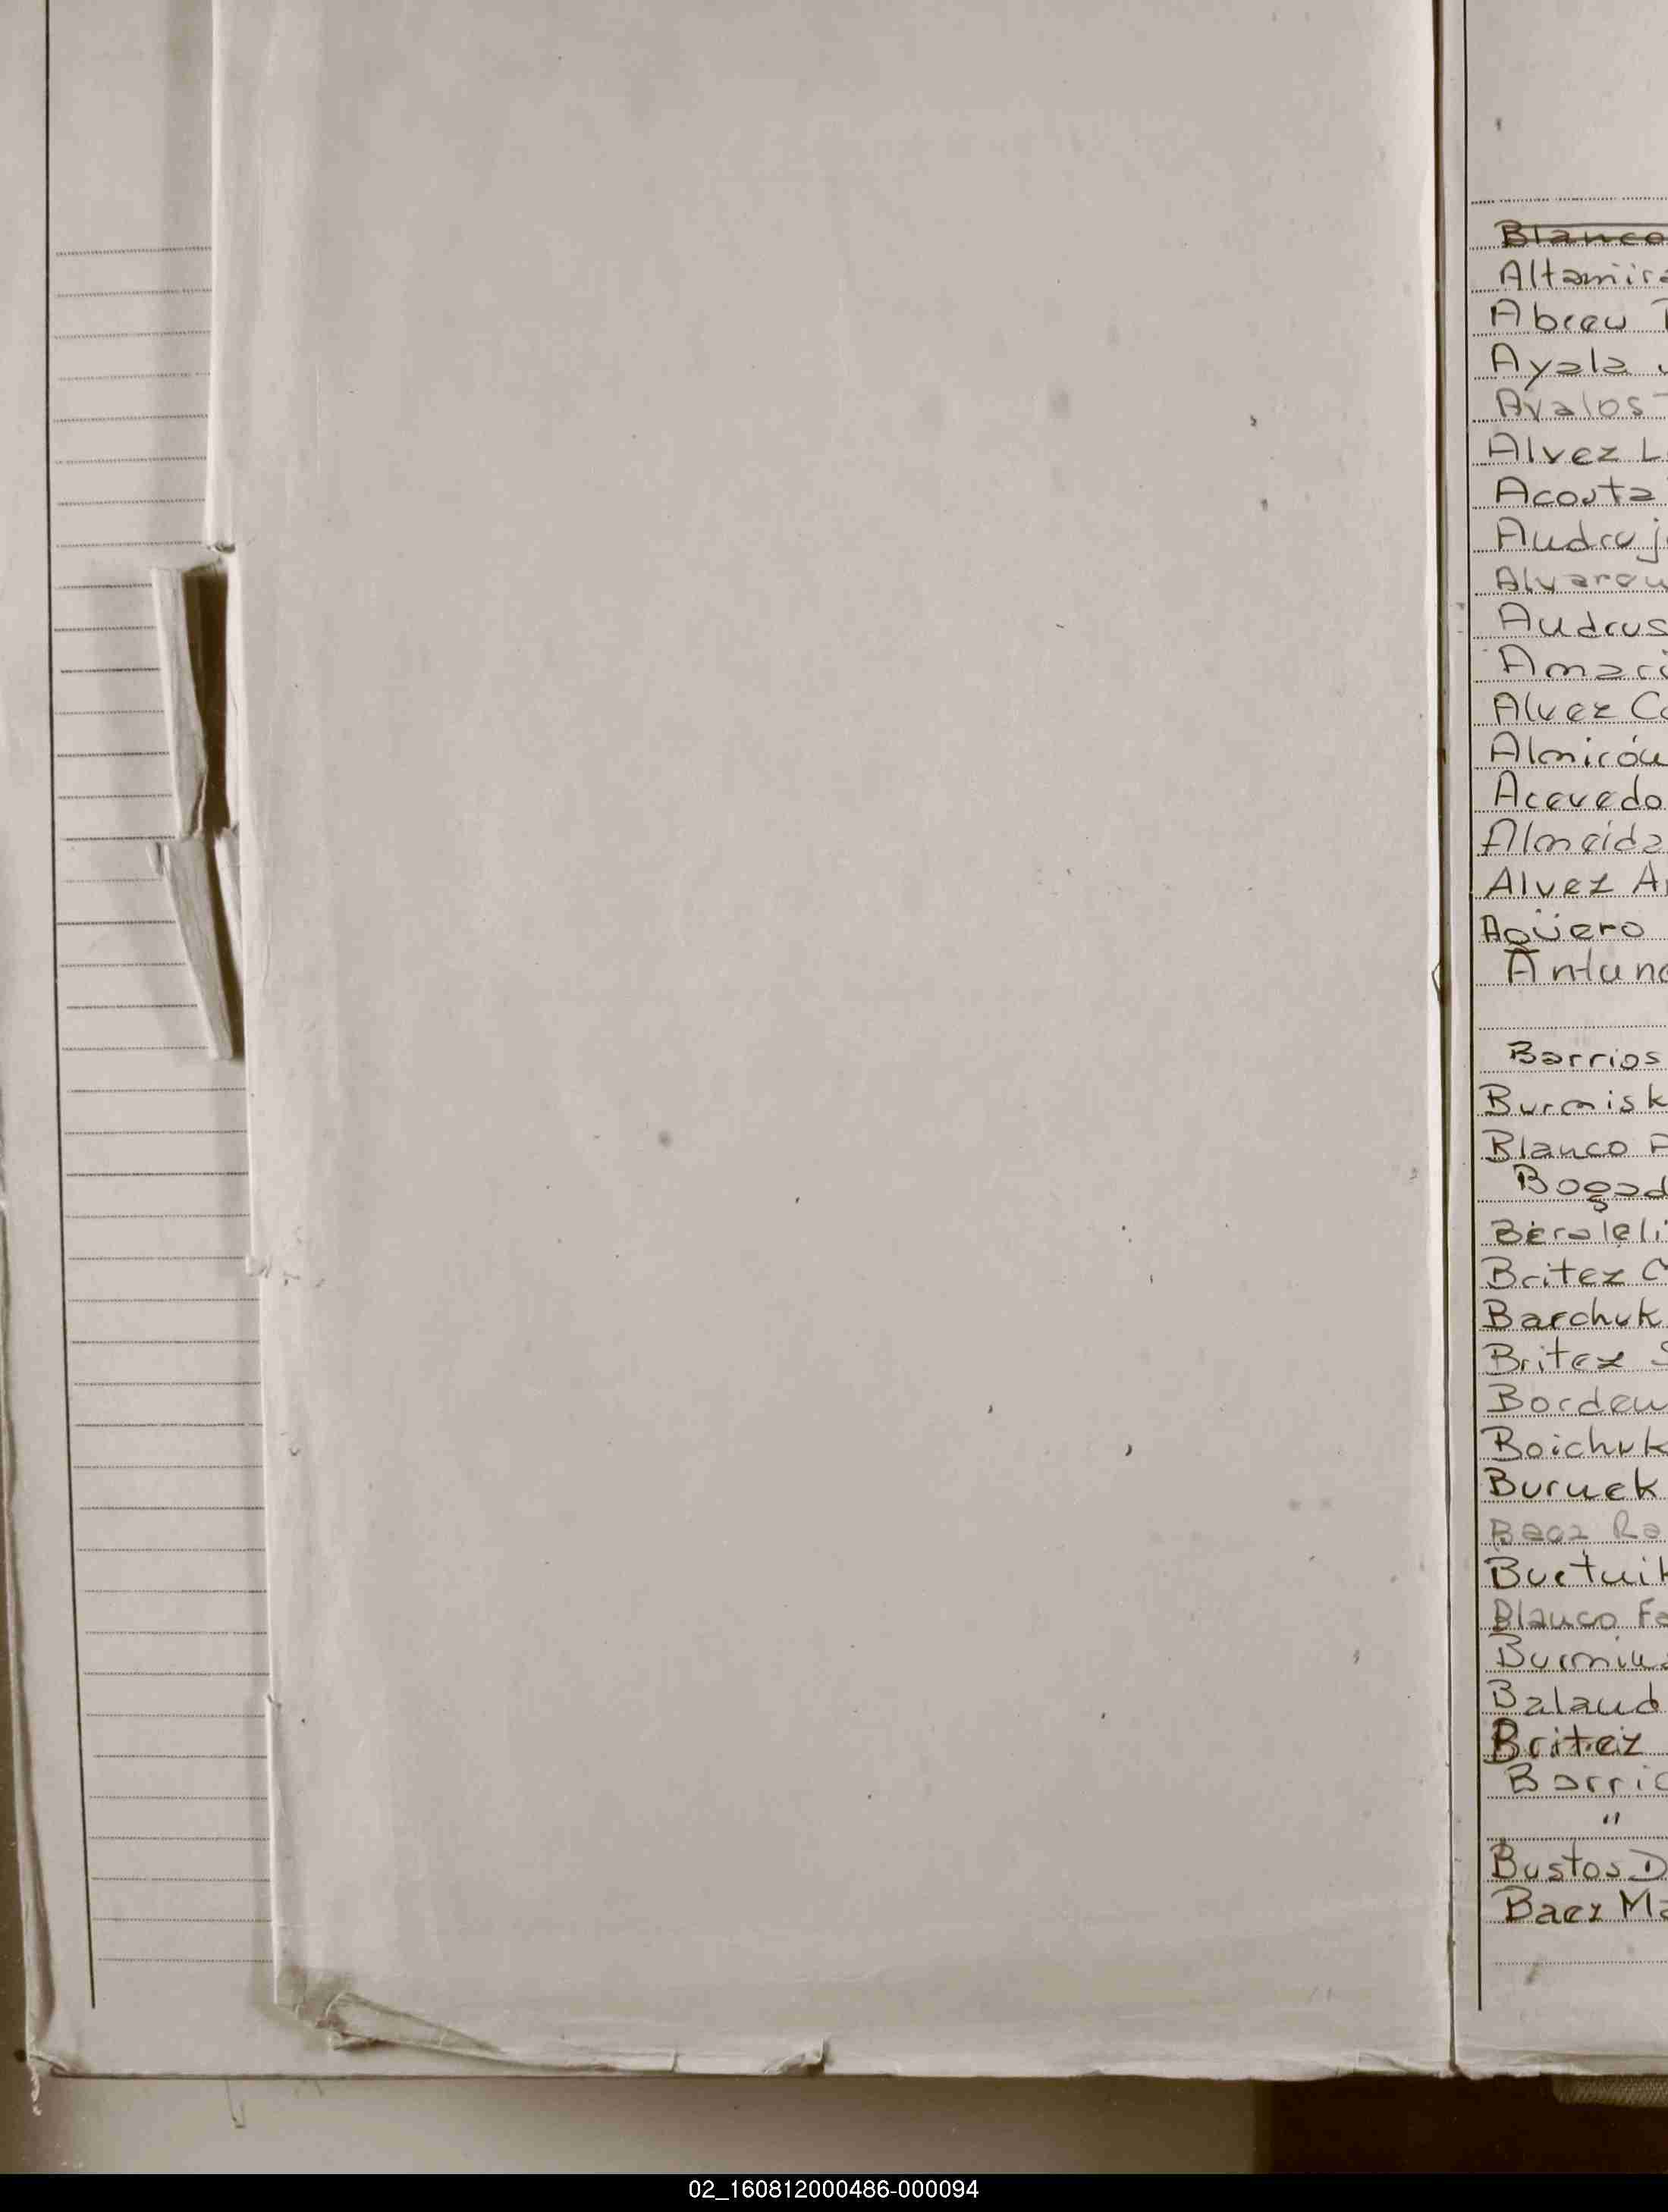 Blanco
Altamira
Abreu
Ayala
Avalos
Alvez L
Acosta
Andruj
Alvareu
Andrus
Amari
Alvez C
Almirón
Acevedo
Almeida
Alvez A
Agüero
Antun
Barrios
Burmisk
Blanco
Bogad
Beraleli
Britez C
Barchuk
Britez S
Borden
Boichuk
Buruek
Baez Ra
Burtuik
Blanco Fa
Burmin
Baland
Britez
Barrio
"
Bustos D
Baez Ma
02_160812000486-000094